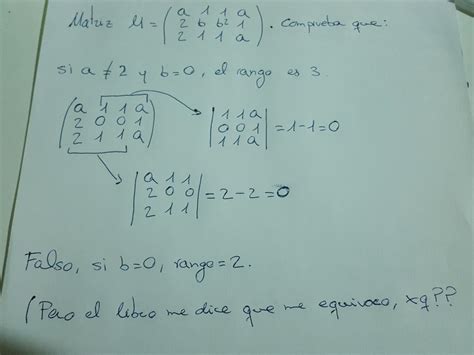 Matriz M = ( a 1 1 a
2 b b² 1
2 1 1 a ) . Comprueba que:
si a ≠ 2 y b=0, el rango es 3.
( a 1 1 a
2 0 0 1
2 1 1 a )
| 1 1 a
0 0 1
1 1 a | = 1-1=0
| a 1 1
2 0 0
2 1 1 | = 2-2=0
Falso, si b=0, rango=2.
(Pero el libro me dice que me equivoco, xq??